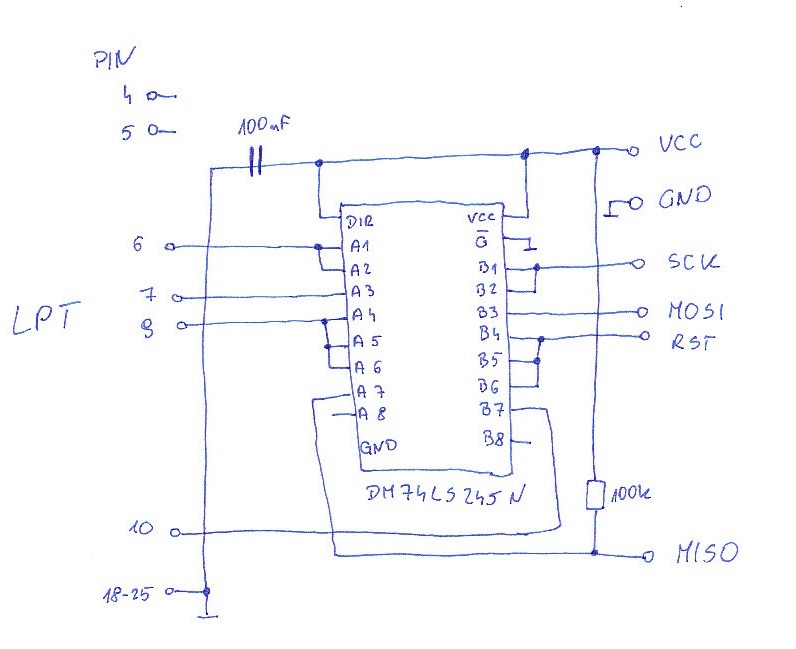 PIN
4
5
100nF
VCC
GND
DIR
VCC
6
A1
G
A2
B1
SCK
7
A3
B2
LPT
8
A4
B3
MOSI
A5
B4
RST
A6
B5
A7
B6
A8
B7
GND
B8
DM74LS245N
100k
10
MISO
18-25